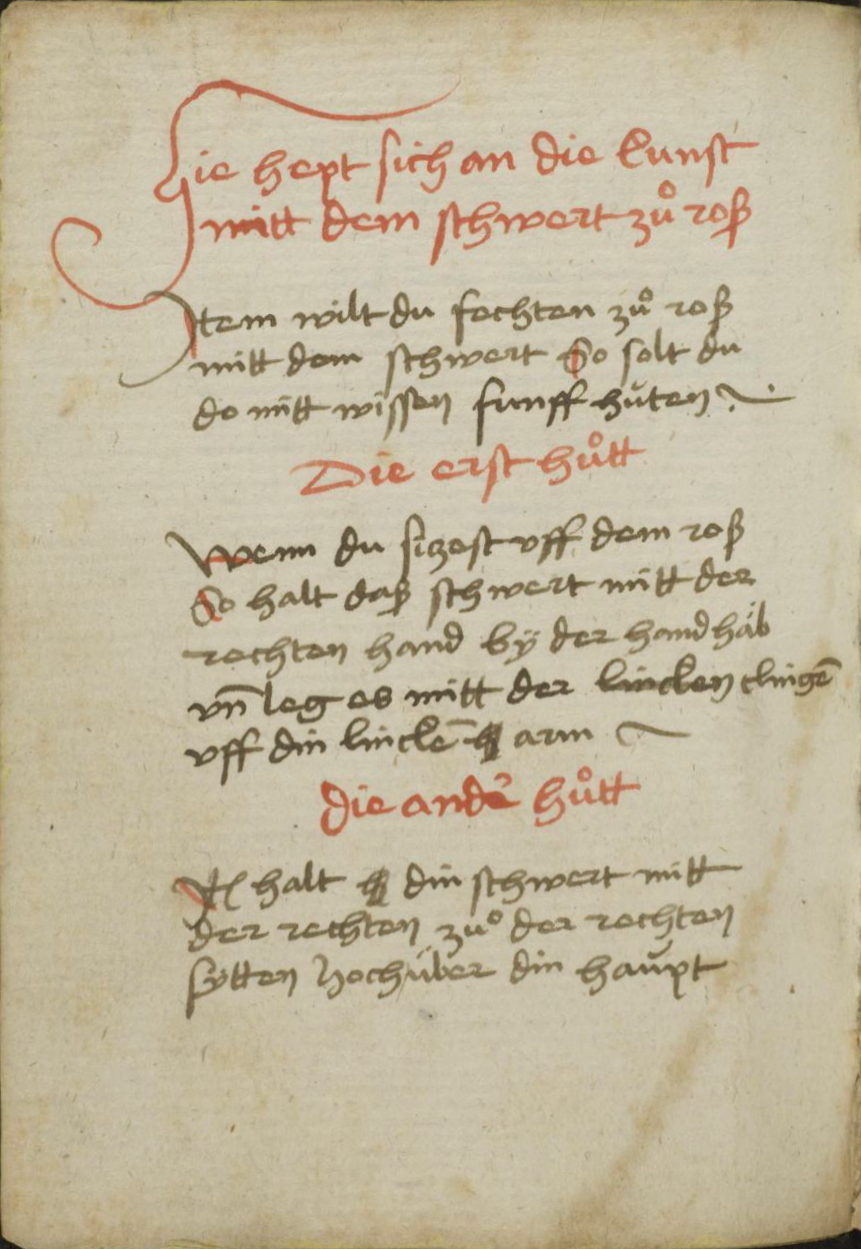 Hie hept sich an die kunst
mitt dem schwert zů roß
Item wilt du fechten zů roß
mitt dem schwert So solt du
do mitt wissen funff hůten
Die erst hůtt
Wenn du sizest vff dem roß
So halt daß schwert mitt der
rechten hand by̎ der handhäb
vn̄ leg es mitt der lincken clingē
vff din linckē arm
die ander hůtt
Itꝫ halt din schwert mitt
der rechten zůo der rechten
sÿtten hoch über din haupt